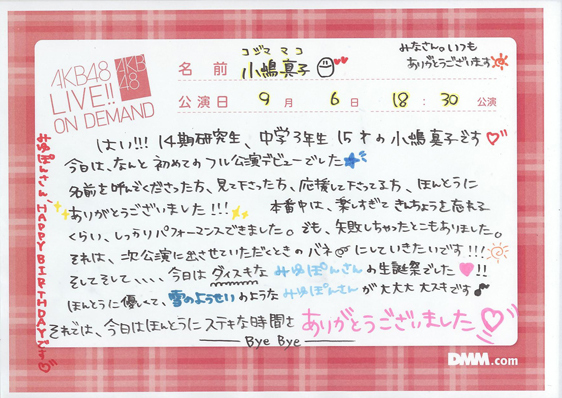 AKB48
LIVE!!
ON DEMAND
AKB
48
コジマ マコ
名前 小嶋真子
みなさん。いつも
ありがとうございます
公演日 9月 6日 18:30公演
はい!!! 14期研究生、中学3年生 15才の小嶋真子です♡
今日は、なんと初めてのフル公演デビューでした★
名前を呼んでくださった方、見て下さった方、応援して下さってる方、ほんとうに
ありがとうございました!!! 本番中は、楽しすぎてきんちょうを忘れる
くらい、しっかりパフォーマンスできました。でも、失敗しちゃったこともありました。
それは、次公演に出させていただくときのバネにしていきたいです!!!
そしてそして、、、、今日はダイスキなみゆぽんさんお生誕祭でした♥!!
ほんとうに優しくて、雪のようせいのようなみゆぽんさんが大大大 大スキです♪
それでは、今日はほんとうにステキな時間をありがとうございました♡
Bye Bye
みゆぽんさん、HAPPY BIRTHDAYです♡
DMM.com